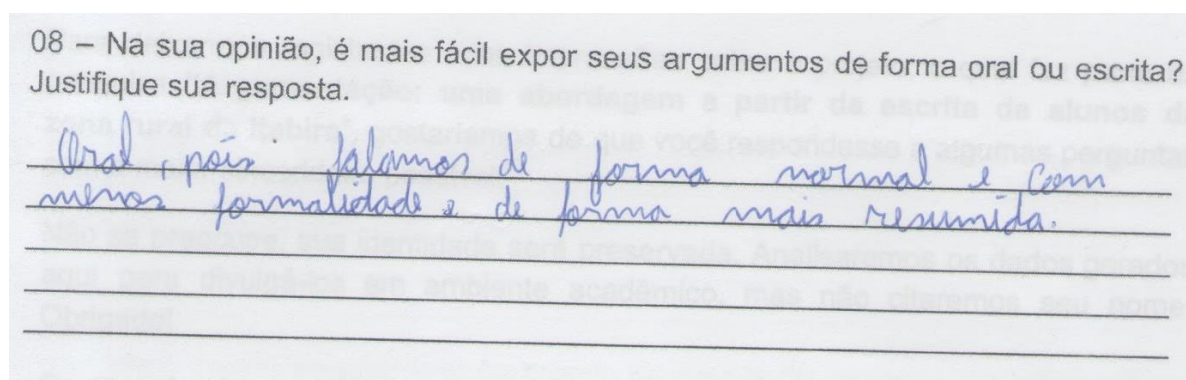 08 – Na sua opinião, é mais fácil expor seus argumentos de forma oral ou escrita?
Justifique sua resposta.
Oral pois falamos de forma normal e com
menos formalidade e de forma mais resumida.